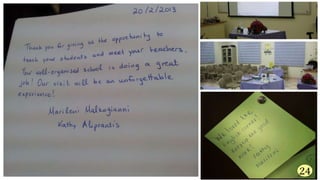 20/2/2013
Thank you for giving us the opportunity to
teach your students and meet your teachers.
Your well-organised school is doing a great
job! Our visit will be an unforgettable
experience!
Marileni Malkogianni
Kathy Aliprantis
We loved the
24